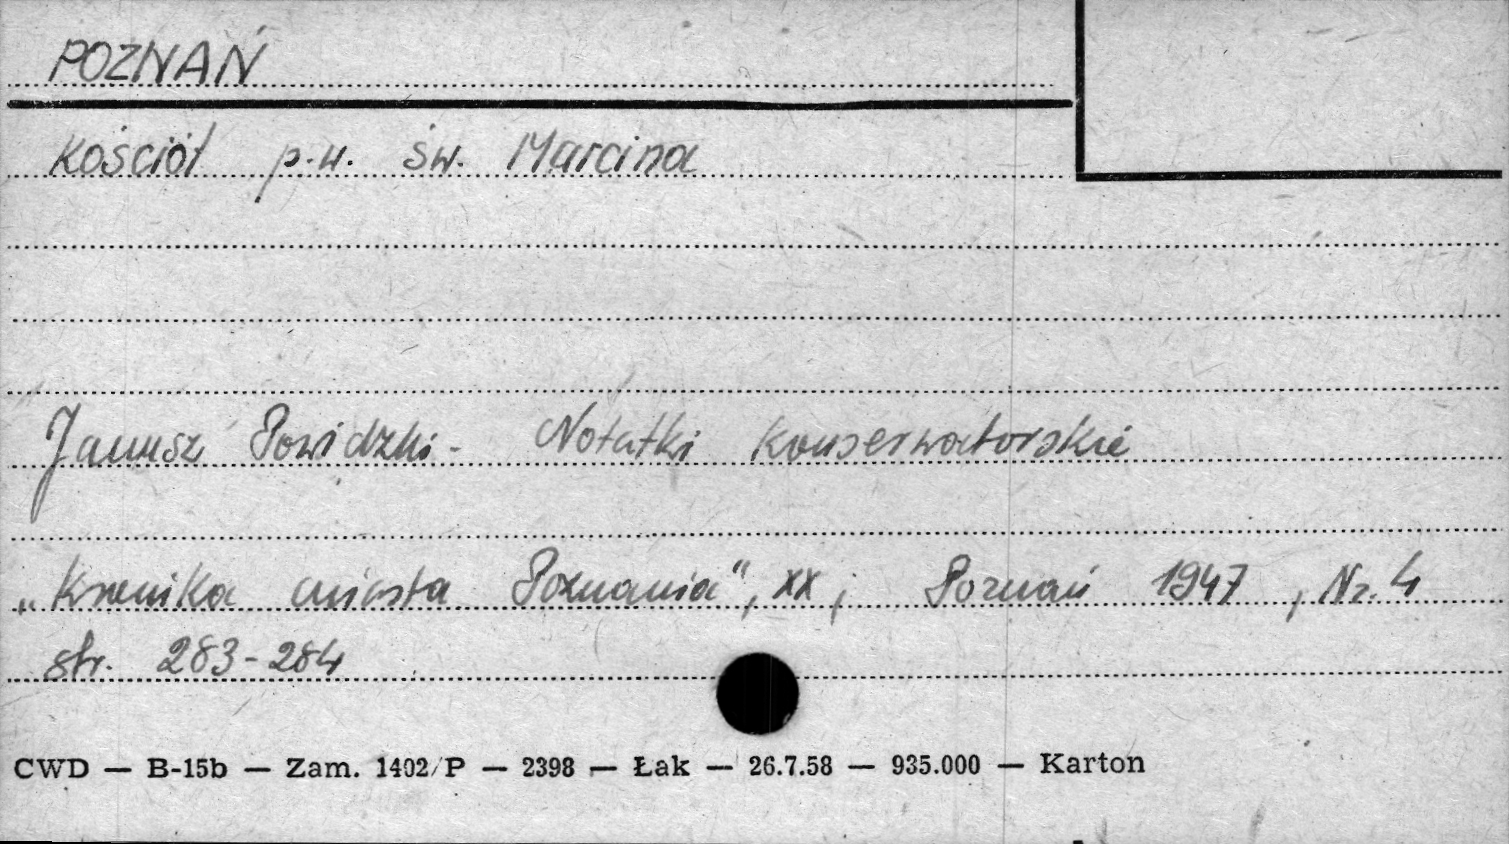 POZNAŃ
Kościół p.w. św. Marcina
Janusz Powidzki - Notatki konserwatorskie
„Kronika miasta Poznania”, XX; Poznań 1947, Nr. 4
str. 283-284
CWD — B-15b — Zam. 1402/P — 2398 — Łak — 26.7.58 — 935.000 — Karton